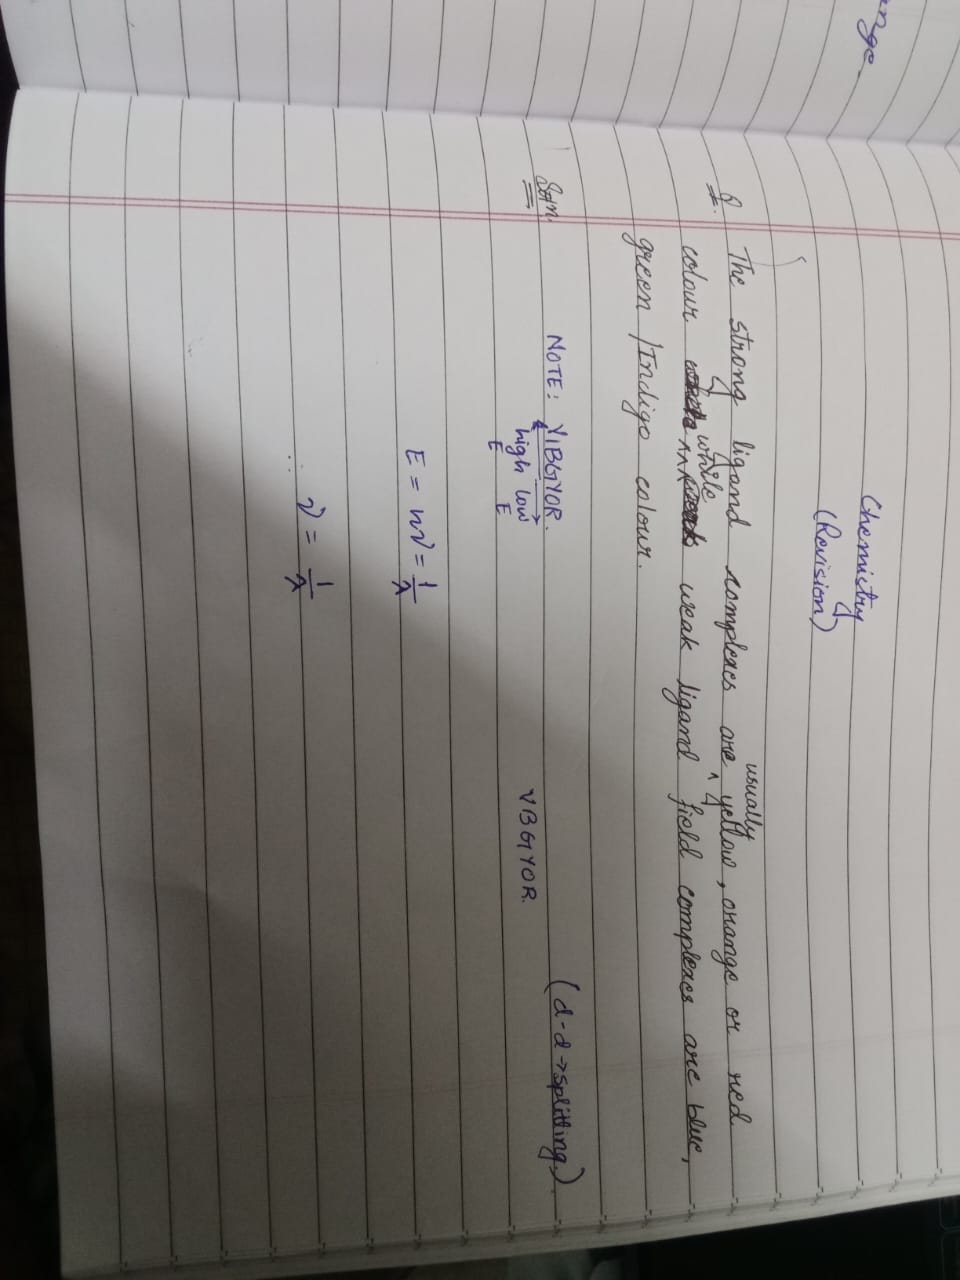 ange.
Chemistry
(Revision)
Q. The strong ligand complexes are usually yellow, orange or red
colour while weak ligand field complexes are blue,
green /Indigo colour.
Soln. NOTE: VIBGYOR. (d-d→splitting.)
high low VBGYOR.
E E
E = hν = 1/λ
∴ ν = 1/λ